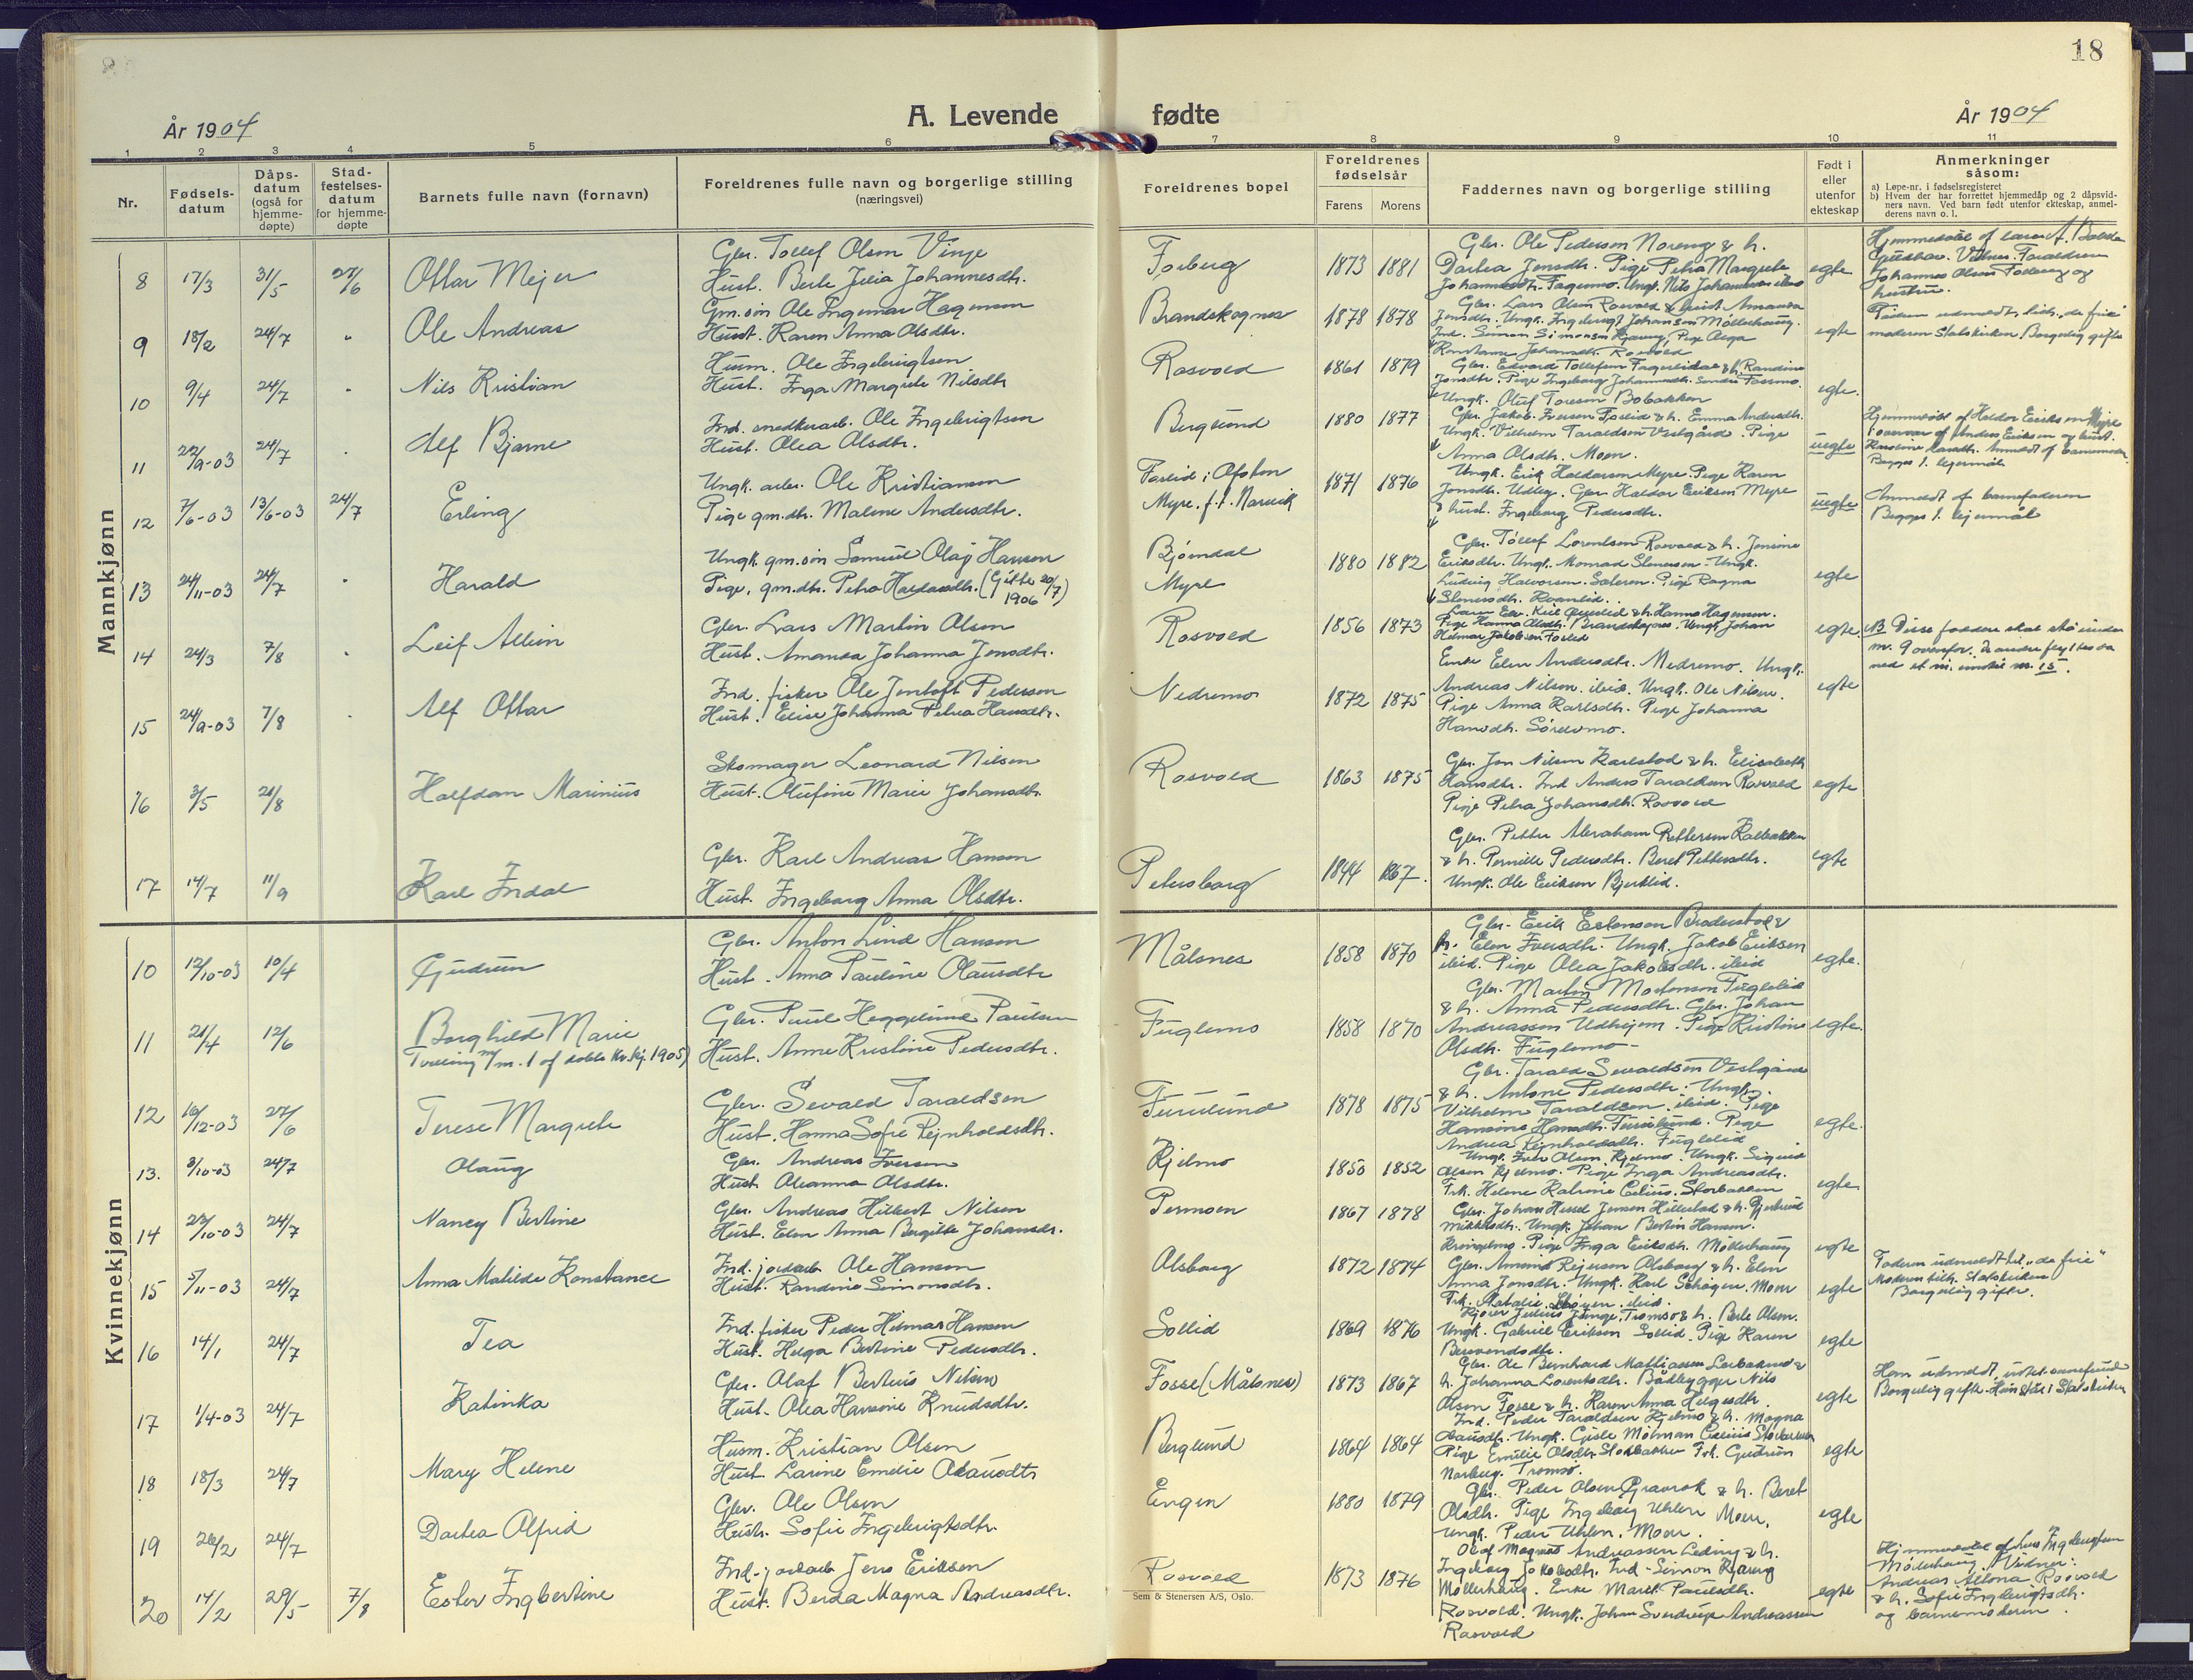 18
År 1904
A. Levende fødte
År 1904
1 2 3 4 5 6 7 8 9 10 11
Nr.
Fødsels-
datum
Dåps-
datum
(også for
hjemme-
døpte)
Stad-
festelses-
datum
for hjemme-
døpte
Barnets fulle navn (fornavn)
Foreldrenes fulle navn og borgerlige stilling
(næringsvei)
Foreldrenes bopel
Foreldrenes
fødselsår
Farens Morens
Faddernes navn og borgerlige stilling
Født i
eller
utenfor
ekteskap
Anmerkninger
såsom:
a) Løpe-nr. i fødselsregisteret
b) Hvem der har forrettet hjemmedåp og 2 dåpsvid-
ners navn. Ved barn født utenfor ekteskap, anmel-
derens navn o. l.
Mannkjønn
8 17/3 31/5 27/6 Ottar Mejer
Gbr. Tollef Olsen Vinje
Hust. Berle Julia Johannesdtr.
Fosberg 1873 1881
Gbr. Ole Pedersen Noreng & h.
Dortea Jensdtr. Pige Petra Margrete
egte
9 18/2 24/7 " Ole Andreas
Gm.søn Ole Ingemar Hagensen
Hust. Karen Anna Olsdtr.
Brandskognes 1878 1878
Gbr. Lars Olsen Rosvold & hust. Amanda
Jensdtr. Ungk. Ingebrigt Johansen Møllerhaug.
Ind. Simon Simonsen Kjæreng, Pige Olga
Konstanse Johannesdtr. Rosvold
egte
10 9/4 24/7 " Nils Kristian
Husm. Ole Ingebrigtsen
Hust. Inga Margrete Nilsdtr
Rosvold 1861 1879
Gbr. Edvard Tollefsen Fagerlidal & h. Randine
Jonsdtr. Pige Ingeborg Johannesdtr. Sondre Fossmo.
Ungk. Oluf Toresen Bobakken
egte.
11 22/9-03 24/7 . Alf Bjarne
Ind. snedkerarb. Ole Ingebrigtsen
Hust. Olea Olsdtr.
Berglund 1880 1877
Gbr. Jakob Iversen Foslid & h. Emma Andersdtr.
Ungk. Vilhelm Taraldsen Vestgård. Pige
Anna Olsdtr. Moen.
uegte
12 7/6-03 13/6-03 24/7 Erling
Ungk. arb. Ole Kristiansen
Pige gm.dtr. Malene Andersdtr.
Foslid i Ofoten
Myre. f. t. Narvik 1871 1876
Ungk. Erik Haldorsen Myre. Pige Karen
Jonsdtr. Udby. Gbr Haldor Eriksen Myre
& hust. Ingeborg Pedersdtr.
uegte
Anmeldt af barnefaderen
Begges 1. lejermål
13 24/11-03 24/7 " Harald
Ungk. gm.søn Samuel Olaj Hansen
Pige, gm.dtr. Petra Haldorsdtr. (Gifte 20/7 1906)
Bjørndal
Myre 1880 1882
Gbr. Tollef Lorentsen Rosvold & h. Jensine
Eriksdtr. Ungk. Monrad Stenersen. Ungk.
Ludvig Halvorsen. Sæteren. Pige Ragna
egte
14 24/3 7/8 " Leif Albin
Gbr. Lars Martin Olsen
Hust. Amanda Johanna Jensdtr.
Rosvold 1856 1873
Pige Hanna Olsdtr. Brandskognes. Ungk. Johan
Hilmar Jakobsen Foslid
egte.
NB Disse faddere skal stå under
nr. 9 ovenfor.
15 24/9-03 7/8 . Alf Ottar
Ind. fisker Ole Jentoft Pedersen
Hust. Elise Johanna Petra Hansdtr.
Nedremo 1872 1875
Enke Elen Andersdtr. Nedremo. Ungk.
Andreas Nilsen. ibid. Ungk. Ole Nilsen.
Pige Anna Karlsdtr. Pige Johanna
Hansdtr. Sørelvmo.
egte
16 3/5 21/8 Halfdan Marinius
Skomager Leonard Nilsen
Hust. Olufine Marie Johansdtr.
Rosvold 1863 1875
Gbr. Jon Nilsen Karlstad & h. Elisabeth
Hansdtr. Ind Anders Taraldsen Rosvold
Pige Petra Johansdtr. Rosvold
egte
17 14/7 11/9 Karl Indal
Gbr. Karl Andreas Hansen
Hust. Ingeborg Anna Olsdtr.
Petersborg 1844 1867.
Gbr. Petter Abraham Pettersen Kalbakken
& h. Pernille Pedersdtr. Beret Pettersdtr.
Ungk. Ole Eriksen Bjerklid.
egte
Kvinnekjønn
10 12/10-03 10/4 Gudrun
Gbr. Anton Lind Hansen
Hust. Anna Pauline Olausdtr
Målsnes 1858 1870
Gbr. Erik Estensen Braderstad &
h. Elen Iversdtr. Ungk. Jakob Eriksen
ibid. Pige Olea Jakobsdtr. ibid
egte.
11 21/4 12/6 Borghild Marie
Tvilling m/nr. 1 af dobte kv.kj. 1905)
Gbr. Paul Heggelund Paulsen
Hust. Anne Kristine Pedersdtr.
Fuglemo 1858 1870
Gbr. Martin Mortensen Fuglelid
& h. Anna Pedersdtr. Gbr. Johan
Andreassen Udhejem. Pige Kristine
Olsdtr. Fuglemo
egte.
12 16/12-03 27/6 Terese Margrete
Gbr. Sevald Taraldsen
Hust. Hanna Sofie Rejnholdsdtr.
Furulund 1878 1875
Gbr. Tarald Sevaldsen Vestgård
& h. Antone Pedersdtr. Ungk.
Vilhelm Taraldsen. ibid. Pige
Hansine Hansdtr. Furulund. Pige
Andrea Rejnholdsdtr. Fuglelid
egte.
13. 3/10-03 24/7 Olaug
Gbr. Andreas Iversen
Hust Oleanna Olsdtr.
Kjelmo 1850 1852
Ungk. Iver Olsen Kjelmo. Ungk. Sigurd
Olsen Kjelmo. Pige Inga Andreasdtr.
Frk. Helene Katrine Celius. Storbakken
egte
14 22/10-03 24/7 Nancy Bertine
Gbr. Andreas Hilbert Nilsen
Hust. Elen Anna Bergitte Johansdr.
Permoen 1867 1878
Gbr. Johan Hessel Jensen Hellestad & h. Gjertrud
Mikkelsdtr. Ungk. Johan Bertin Hansen.
Kongslimo. Pige Inga Eriksdtr. Møllerhaug
egte
15 5/11-03 24/7 Anna Matilde Konstance
Ind. jordarb Ole Hansen
Hust. Randine Simonsdtr.
Olsborg 1872 1874
Gbr. Amund Rejersen Olsborg & h. Elen
Anna Jonsdtr. Ungk. Karl Schøyen. Moen
Frk. Natalie Schøyen. ibid.
egte
Faderen udmeldt til "de frie"
Moderen tilh. Statskirken
Borgerlig gifte.
16 14/1 24/7 Tea
Ind. fisker Peder Hilmar Hansen
Hust. Helga Bertine Pedersdtr.
Sollid 1869 1876
Ungk. Gabriel Eriksen Sollid. Pige Karen
egte
17 1/4-03 24/7 Katinka
Gbr. Olaf Bertius Nilsen
Hust. Olea Hansine Knudsdtr.
Fosse (Målsnes) 1873 1867
Gbr. Ole Bernhard Mathiassen
h. Johanna Lorentsdtr. Bådbygger Nils
Olsen Fosse & h. Karen Anna Helgesdtr.
egte
18 18/3 24/7 Mary Helene
Husm. Kristian Olsen
Hust Larine Emelie Olausdtr
Berglund 1864 1864
Ind. Peder Taraldsen Kjelmo & h. Magna
Olausdtr. Ungk. Gisle Molman Celius Storbakken
Pige Emilie Olsdtr Storbakken Frk. Gudrun
Norberg. Tromsø.
egte
19 20/2 24/7 Dortea Alfrid
Gbr. Ole Olsen
Hust. Sofie Ingebrigtsdtr.
Engen 1880 1879
Gbr. Peder Olsen Gravrok & h. Beret
Olsdtr. Pige Ingeborg Uhlen Moen.
Ungk. Peder Uhlen. Moen.
egte
20 14/2 29/5 7/8 Ester Ingbertine
Ind. jordarb Jens Eriksen
Hust. Berda Magna Andreasdtr.
Rosvold 1873 1876
Olaf Magnus Andreassen Leding & h.
Ingeborg Jakobsdtr. Ind. Simon Kjæreng
Møllerhaug. Enke Marit Paulsdtr.
Rosvold. Ungk. Johan Sverdrup Andreassen
Rosvold
egte
Møllerhaug. Vidner:
Andreas Altona Rosvold
& h. Sofie Ingebrigtsdtr.
og barnemoderen.
Sem & Stenersen A/S, Oslo.